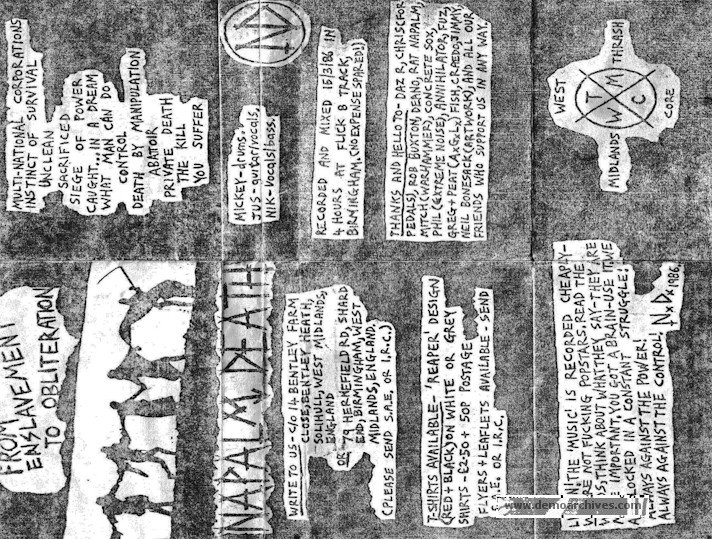 MULTI-NATIONAL CORPORATIONS
INSTINCT OF SURVIVAL
UNCLEAN
SACRIFICED
SIEGE OF POWER
CAUGHT...IN A DREAM
WHAT MAN CAN DO
CONTROL
DEATH BY MANIPULATION
ABATOIR
PRIVATE DEATH
THE KILL
YOU SUFFER
ND
MICKEY-drums.
JUS-guitar/vocals,
NIK-vocals/bass.
RECORDED AND MIXED 15/3/86 IN
4 HOURS AT FLICK 8 TRACK,
BIRMINGHAM. (NO EXPENSE SPARED!)
THANKS AND HELLO TO- DAZ R, CHRIS (FOR
PEDALS), ROB BUXTOM, DEANO, RAT NAPALM,
MITCH (WARHAMMER), CONCRETE SOX,
PHIL (EXTREME NOISE), ANNIHILATOR, FUZ,
GREG + PEAT (A.G.L.,) FISH, CRAEDO, JIMMY,
NEIL BONESACK (ARTWORK), AND ALL OUR
FRIENDS WHO SUPPORT US IN ANY WAY.
WEST
THRASH
W T M C
MIDLANDS
CORE
FROM
ENSLAVEMENT
TO OBLITERATION
NAPALM DEATH
WRITE TO US - C/O 14 BENTLEY FARM
CLOSE, BENTLEY HEATH,
SOLIHULL, WEST MIDLANDS,
ENGLAND
OR 79 HERNEFIELD RD, SHARD
END, BIRMINGHAM, WEST
MIDLANDS, ENGLAND.
(PLEASE SEND S.A.E, OR I.R.C.)
T-SHIRTS AVAILABLE- 'REAPER DESIGN
(RED + BLACK) ON WHITE OR GREY
SHIRTS - £2-50 + 50P POSTAGE
FLYERS + LEAFLETS AVAILABLE - SEND
OR I.R.C,
THE 'MUSIC' IS RECORDED CHEAPLY-
NOT FUCKING POPSTARS, READ THE
THINK ABOUT WHAT THEY SAY-THEY ARE
IMPORTANT, YOU GOT A BRAIN-USE IT WE
LOCKED IN A CONSTANT STRUGGLE!
ALWAYS AGAINST THE POWER!
ALWAYS AGAINST THE CONTROL!
NxDx 1986.
www.demoarchives.com